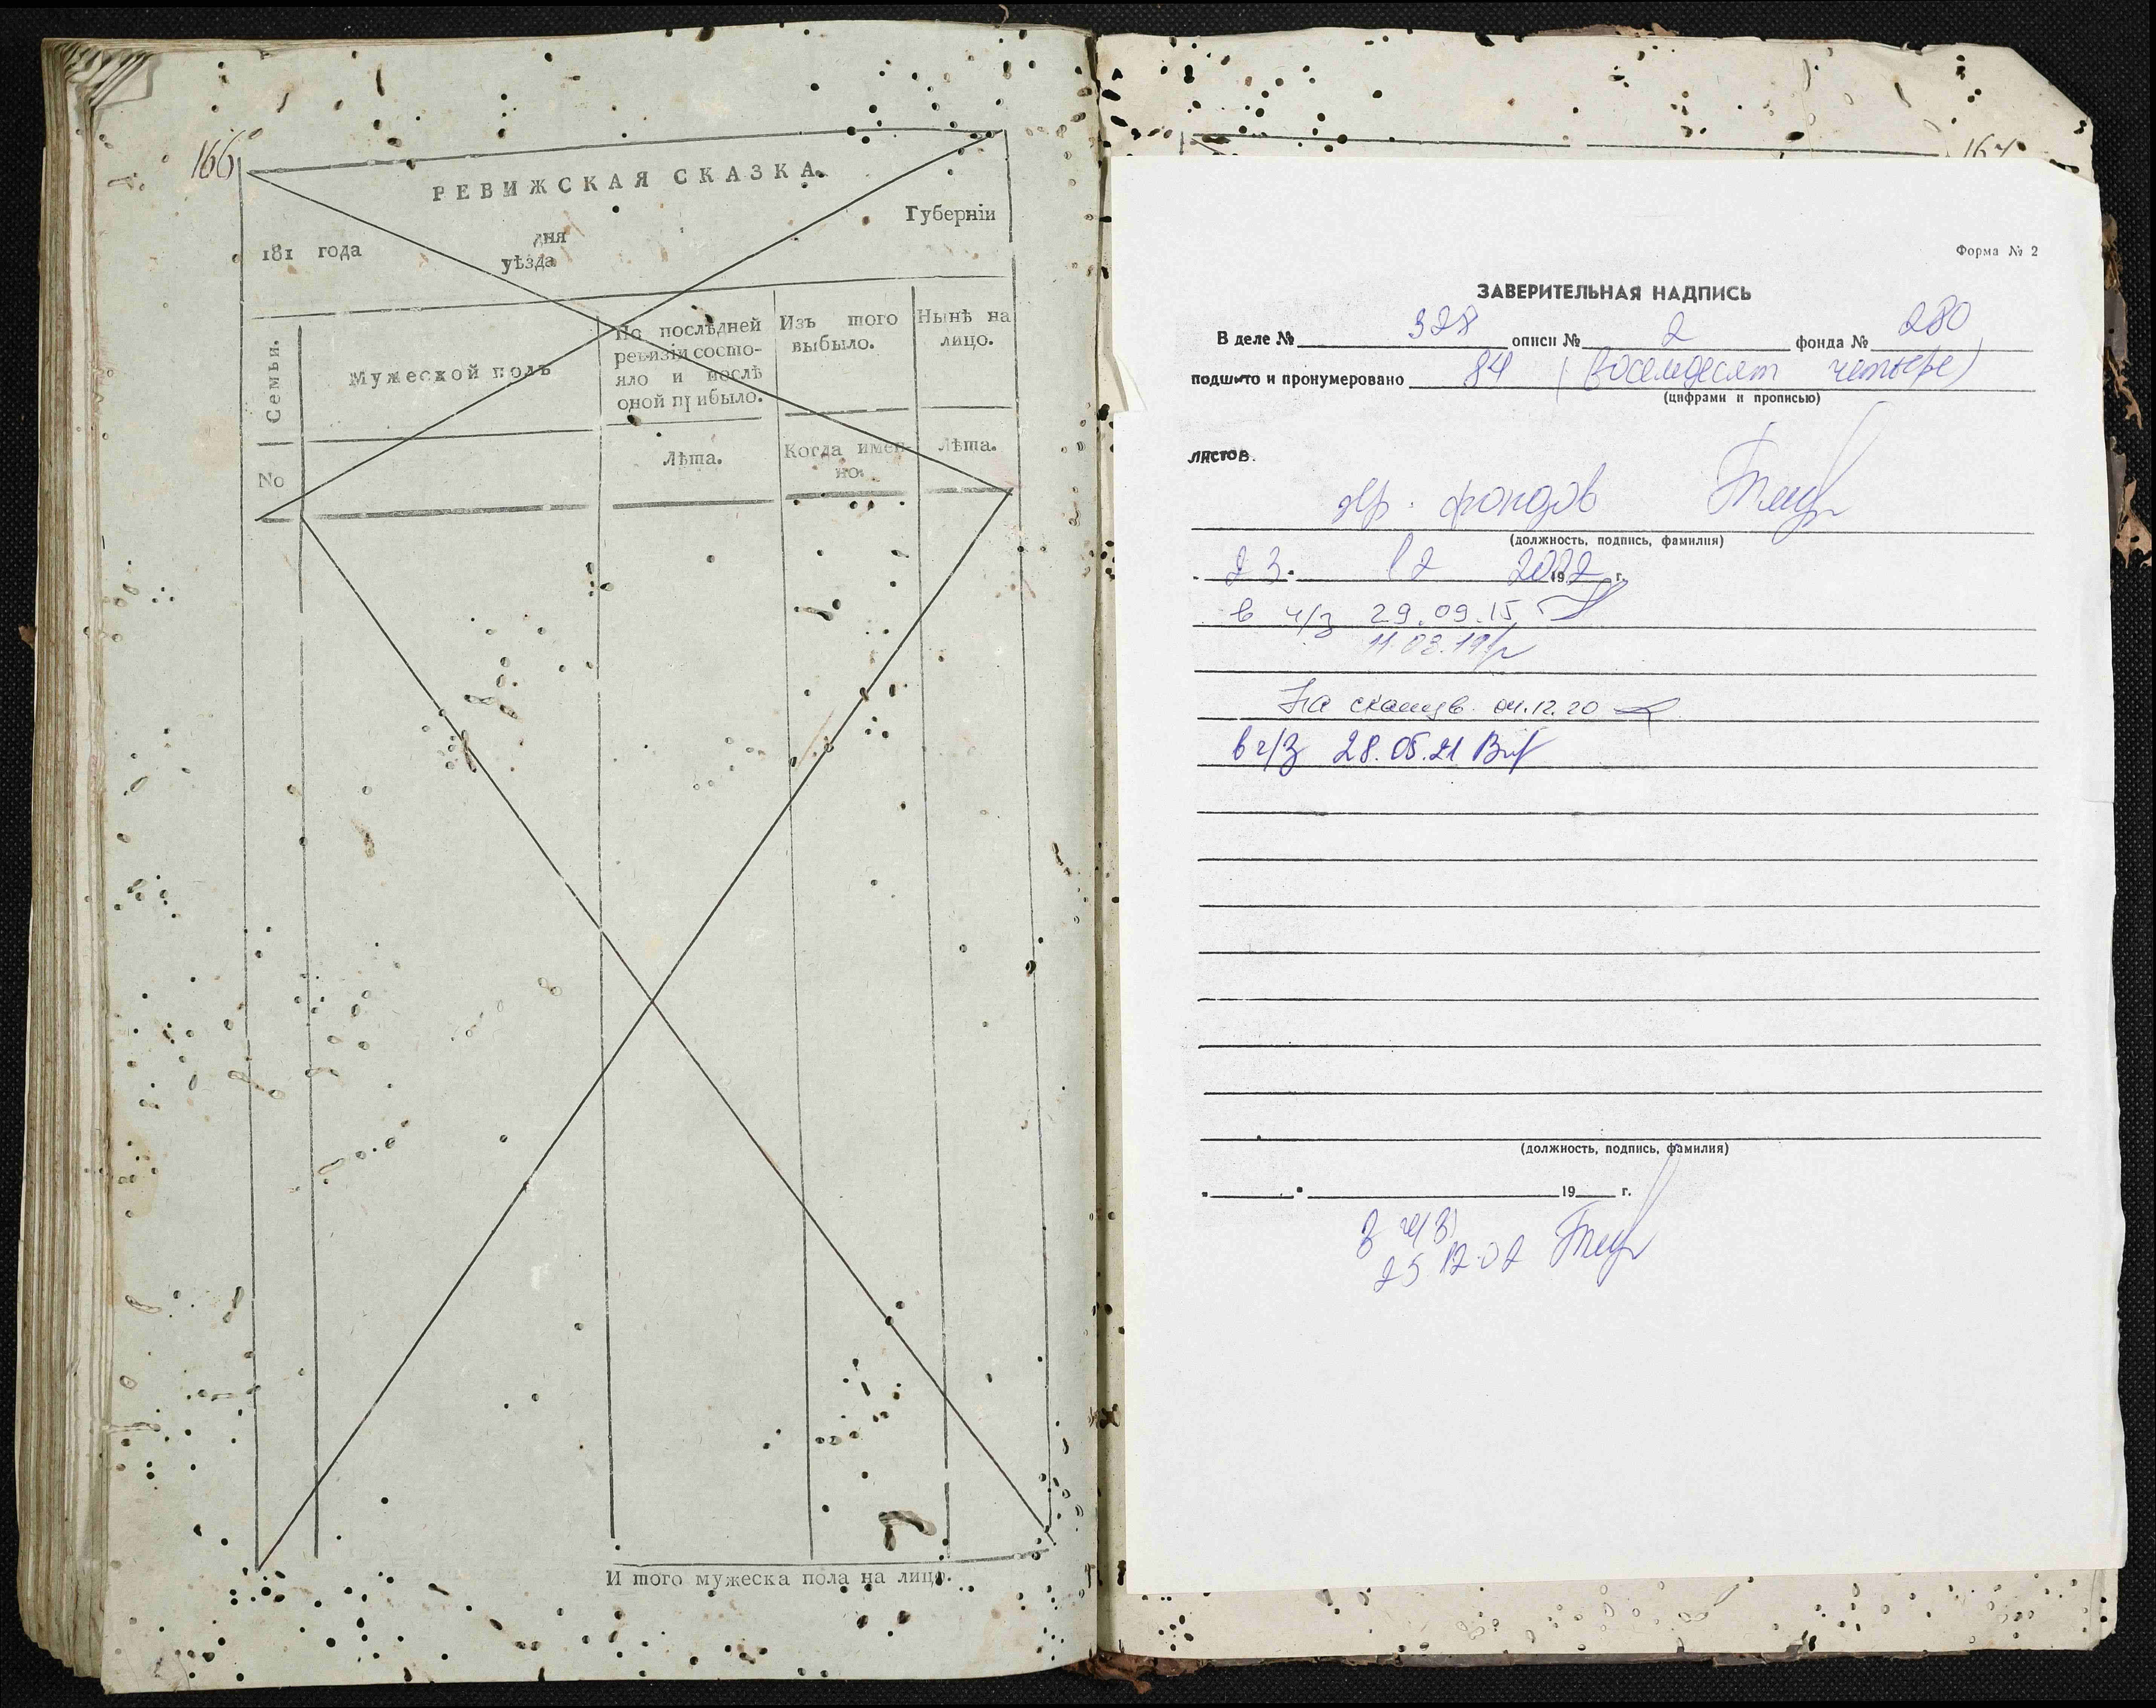 166
РЕВИЖСКАЯ СКАЗКА.
181 года дня Губерніи
уѣзда
Семьи.
No
Мужеской полъ
По послѣдней
ревизіи состо-
яло и послѣ
оной прибыло.
Лѣта.
Изъ того
выбыло.
Когда имен-
но.
Нынѣ на
лицо.
Лѣта.
И того мужеска пола на лицо.
167
Форма № 2
ЗАВЕРИТЕЛЬНАЯ НАДПИСЬ
В деле № 328 описи № 2 фонда № 280
подшито и пронумеровано 84 (восемдесят четыре)
(цифрами и прописью)
листов.
хр. фондов
(должность, подпись, фамилия)
23. 12 2002 19 г.
в ч/з 29.09.15
11.03.19
На сканир. 04.12.20
в ч/з 28.05.21
(должность, подпись, фамилия)
19 г.
В ч/з
25 12.02